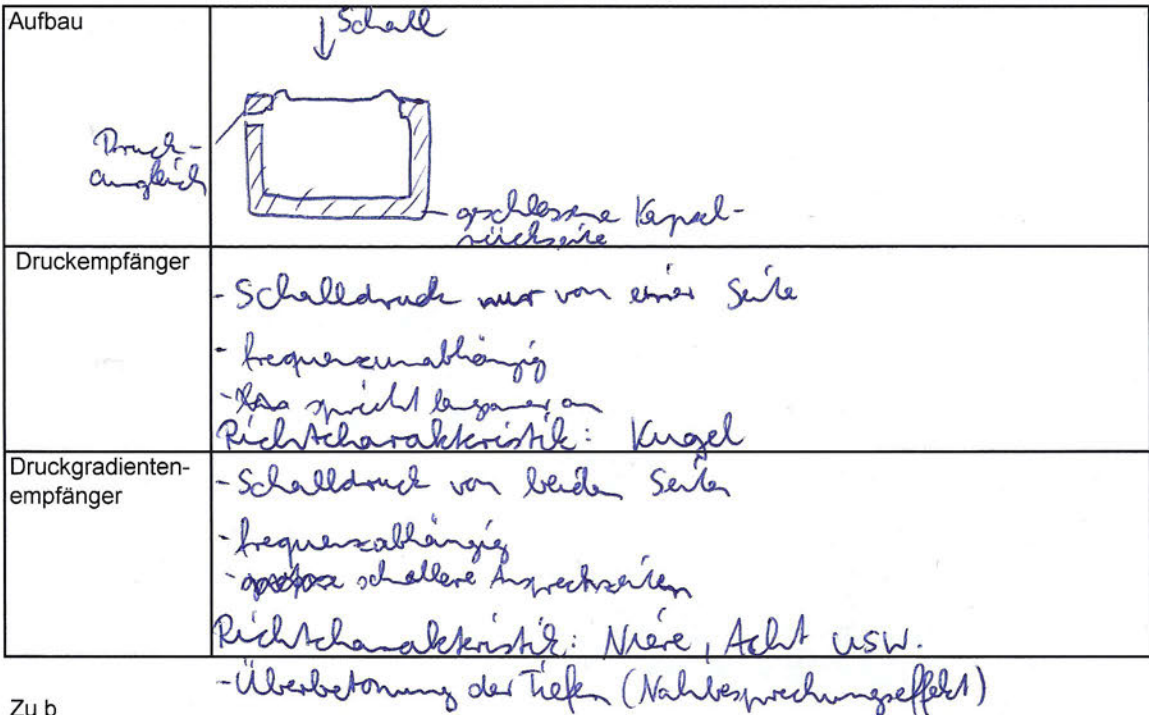 Aufbau
Schall
Druck-
ausgleich
geschlossene Kapsel-
rückseite
Druckempfänger
- Schalldruck nur von einer Seite
- frequenzunabhängig
- spricht langsamer an
Richtcharakteristik: Kugel
Druckgradienten-
empfänger
- Schalldruck von beiden Seiten
- frequenzabhängig
- schellere Ansprechzeiten
Richtcharakteristik: Niere, Acht usw.
- Überbetonung der Tiefen (Nahbesprechungseffekt)
Zu b